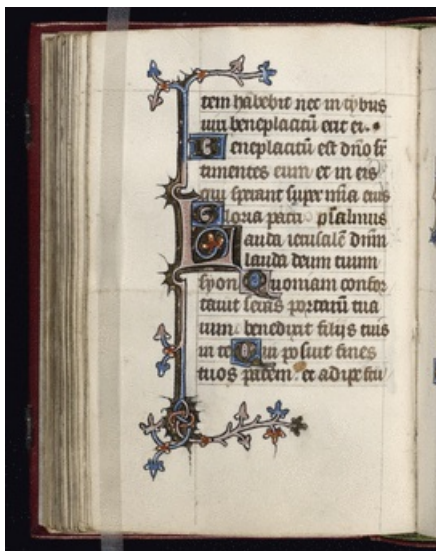 tem habebit nec in tybus
uiri beneplacitū erit ei.
Beneplacitū est dn̄o sr̄
timentes eum et in eis
qui sperant super mīa eius
Gloria patri psalmus
Lauda ierusalē dn̄m
lauda deum tuum
syon Quoniam confor
tauit seras portarū tua
rum benedixit filijs tuis
in te Qui posuit fines
tuos pacem et adipe fru